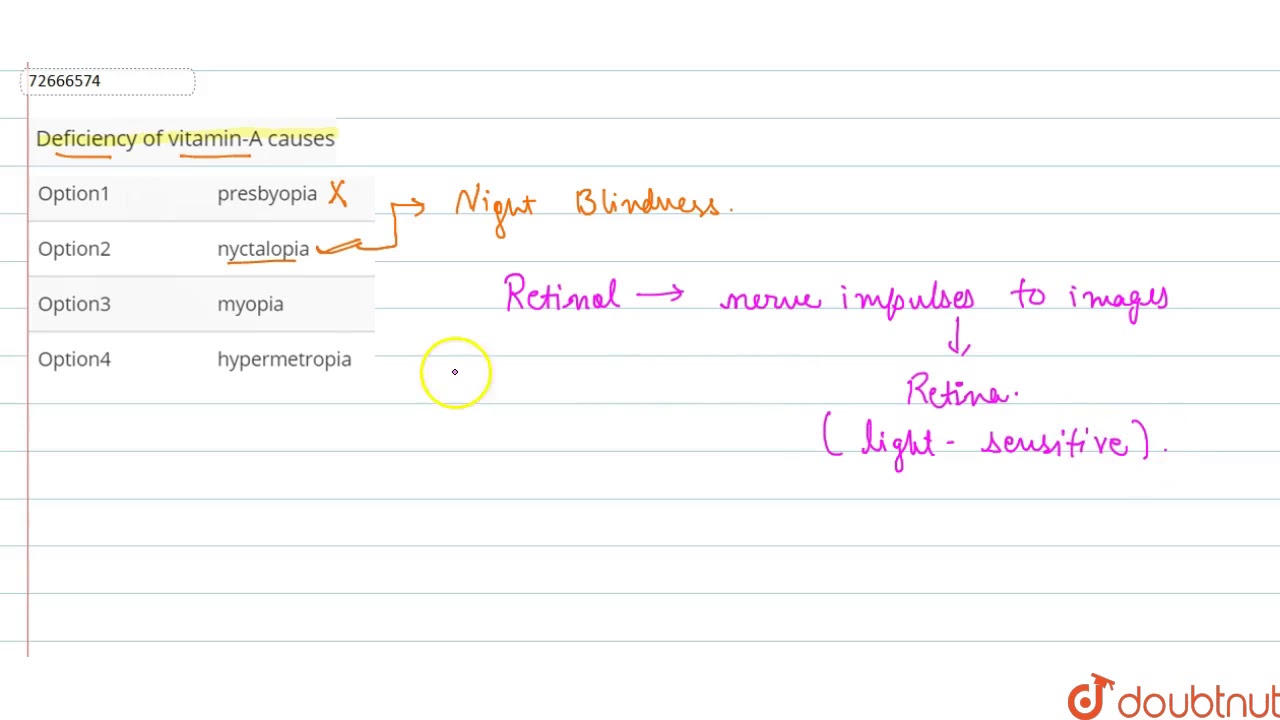 72666574
Deficiency of vitamin-A causes
Option1 presbyopia X
Option2 nyctalopia
Option3 myopia
Option4 hypermetropia
Night Blindness.
Retinal → nerve impulses to images
↓
Retina.
(light - sensitive).
doubtnut